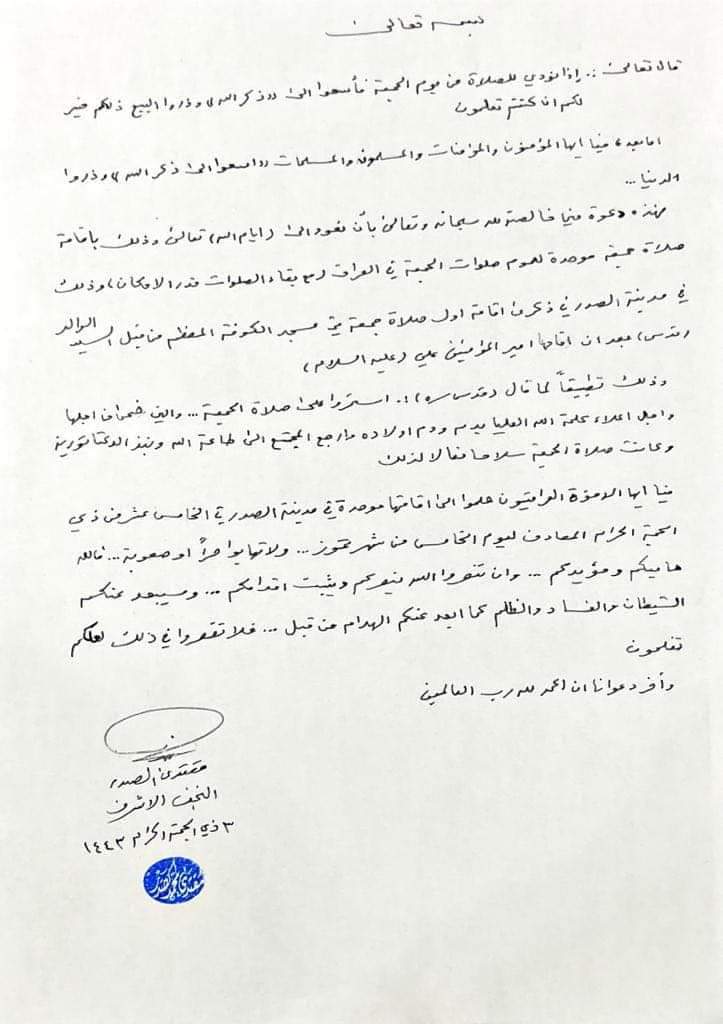 بسمه تعالى
قال تعالى :. إذا نودي للصلاة من يوم الجمعة فأسعوا الى ((ذكر الله)) وذروا البيع ذلكم خير
لكم ان كنتم تعلمون
اما بعد، فيا ايها المؤمنون والمؤمنات والمسلمون والمسلمات ((اسعوا الى ذكر الله)) وذروا
الدنيا...
فهذه دعوة منا خالصة لله سبحانه وتعالى بأن نعود الى (ايام الله) تعالى وذلك باقامة
صلاة جمعة موحدة لعموم صلوات الجمعة في العراق (مع بقاء الصلوات قدر الامكان) وذلك
في مدينة الصدر في ذكرى اقامة اول صلاة جمعة في مسجد الكوفة المعظم من قبل السيد الوالد
(قدس) بعد ان اقامها امير المؤمنين علي (عليه السلام)
وذلك تطبيقاً لما قال (قدس سره) :. استمروا على صلاة الجمعة ... والتي ضحى من اجلها
واجل اعلاء كلمة الله العليا بدمه ودم اولاده وارجع المجتمع الى طاعة الله ونبذ الدكتاتورية
وكانت صلاة الجمعة سلاحا فعالا لذلك
فيا ايها الاخوة العراقيون هلموا الى اقامتها موحدة في مدينة الصدر في الخامس عشر من ذي
الحجة الحرام المصادف لليوم الخامس من شهر تموز ... ولا تهابوا حراً او صعوبة ... فالله
حاميكم ومؤيدكم ... وان تنصروا الله ينصركم ويثبت اقدامكم ... وسيبعد عنكم
الشيطان والفساد والظلم كما ابعد عنكم الهدام من قبل ... فلا تقصروا في ذلك لعلكم
تفلحون
وآخر دعوانا ان الحمد لله رب العالمين
مقتدى الصدر
النجف الاشرف
٣ ذي الحجة الحرام ١٤٤٣